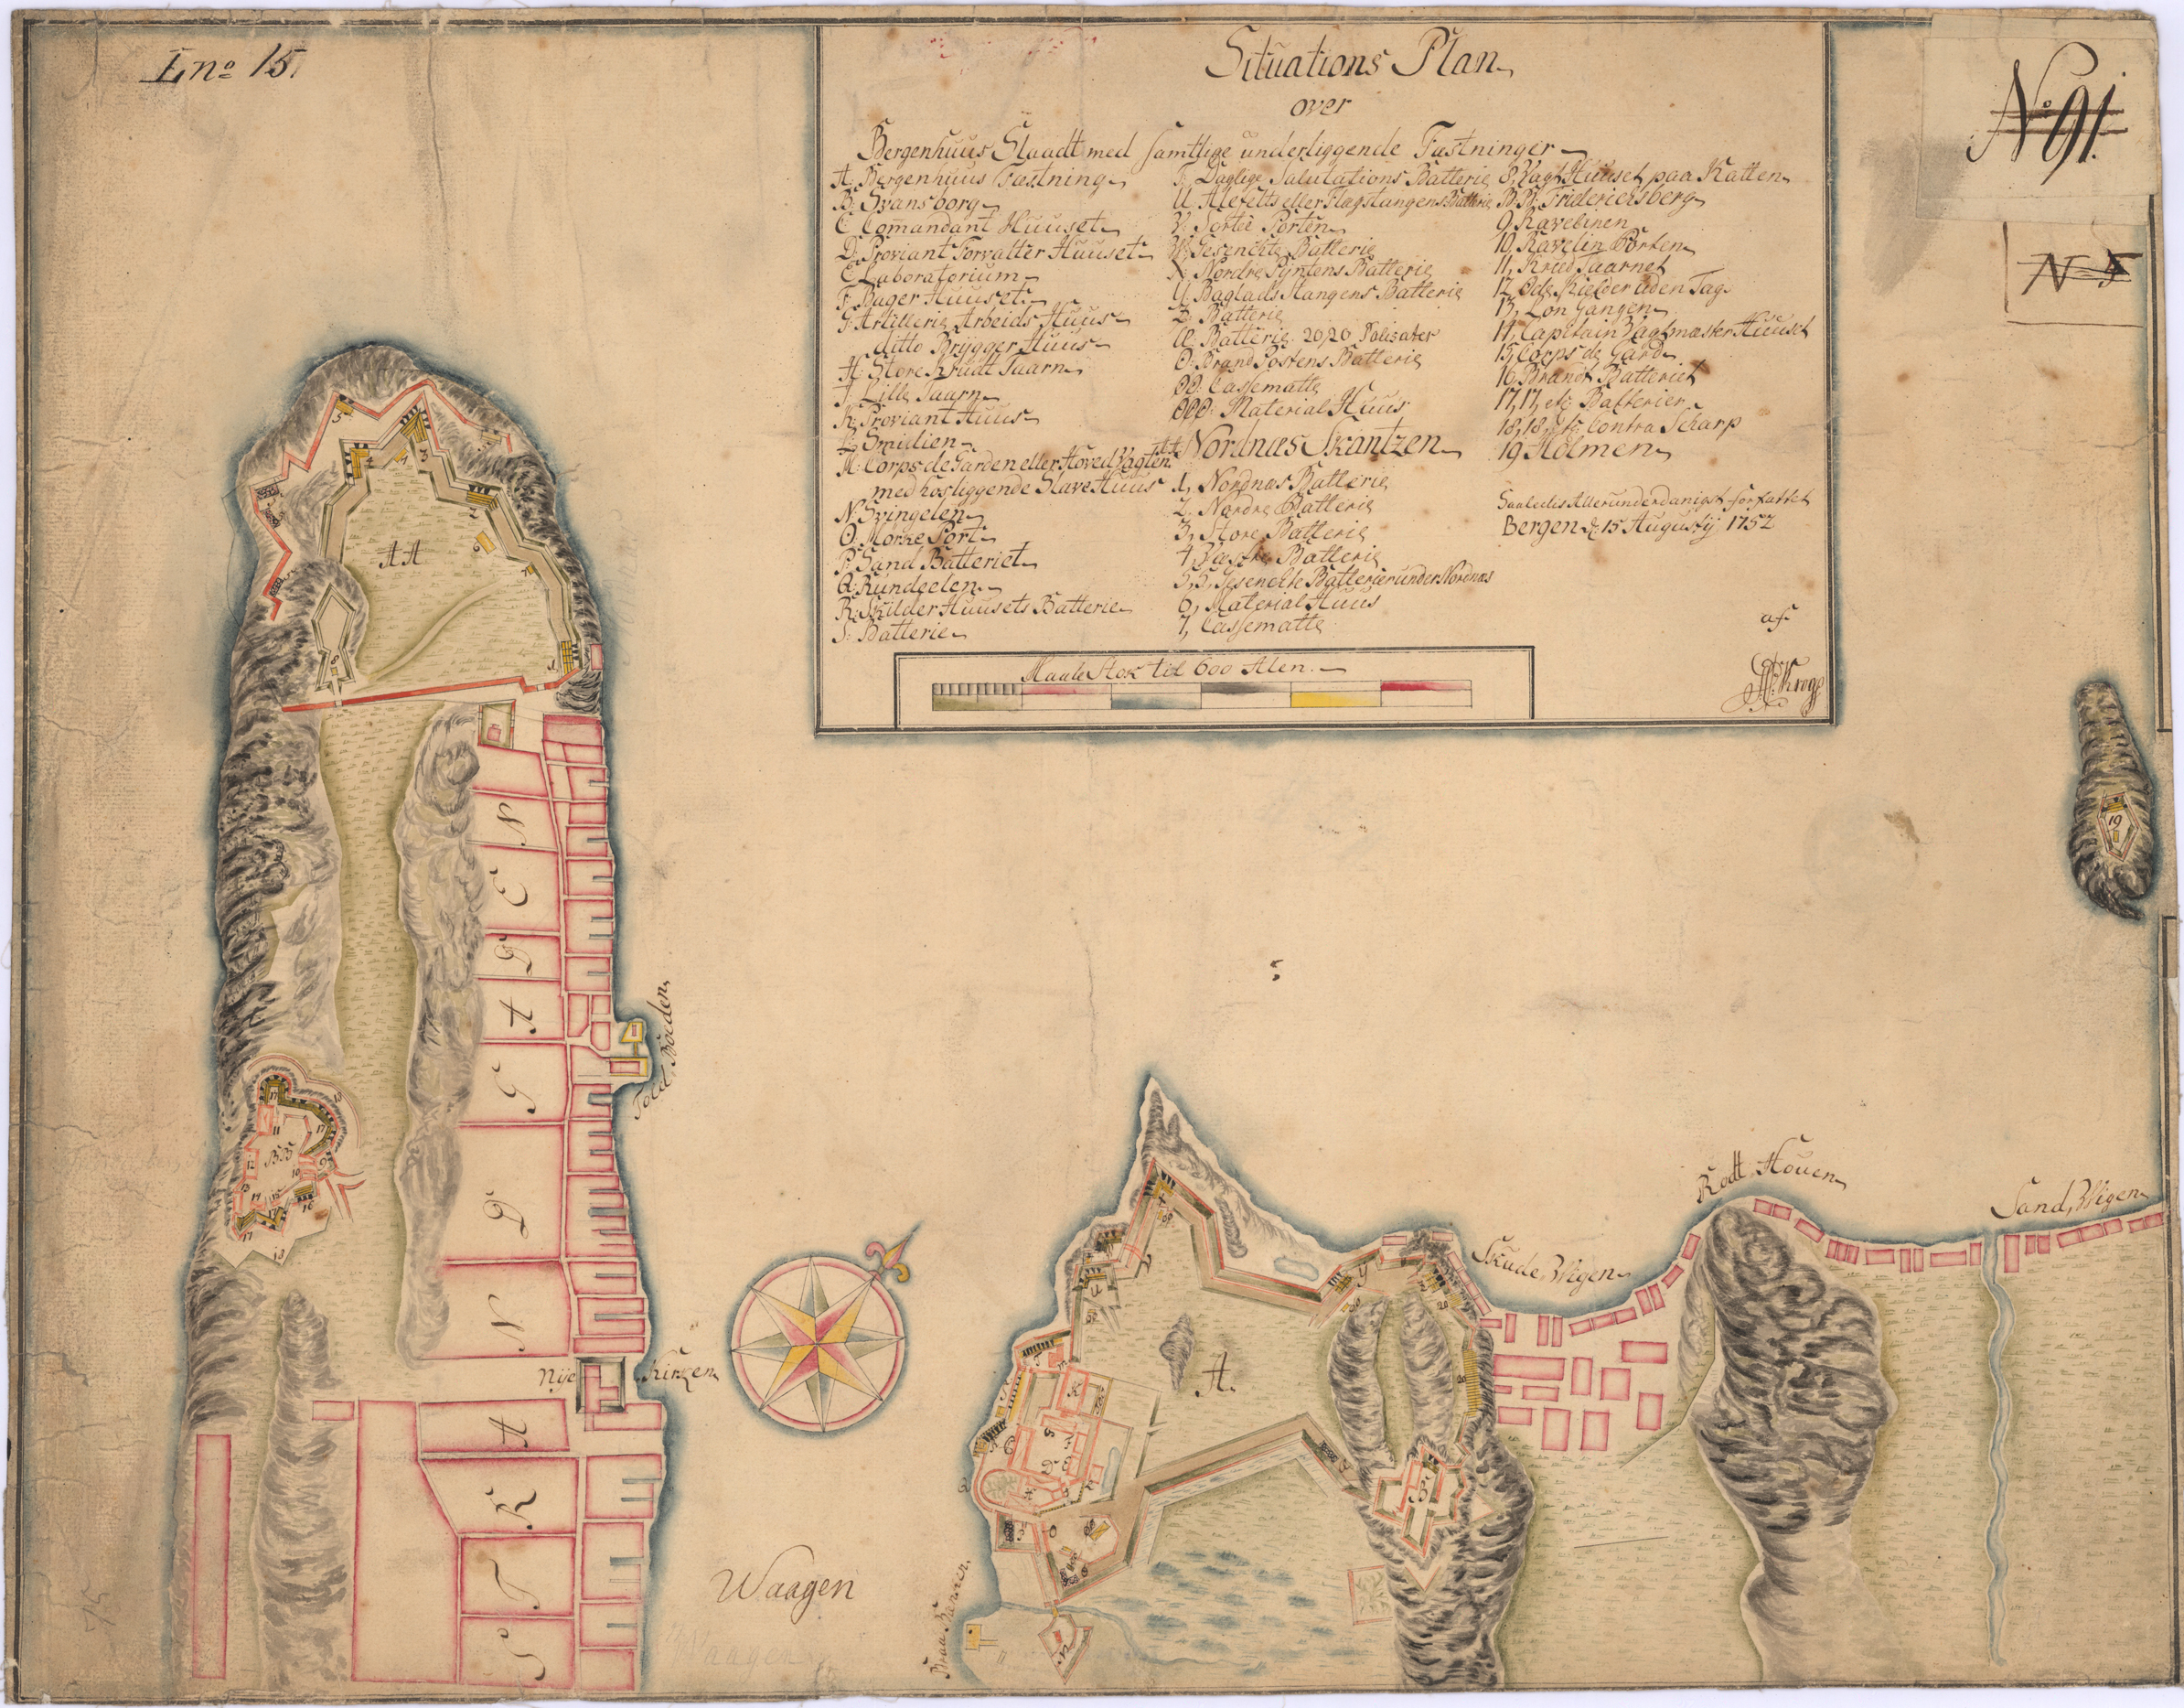 L no 15.
Situations Plan
over
Bergenhuus Slaadt med samtlige underliggende Fæstninger
A. Bergenhuus Fæstning
B. Svansborg
C Comandant Huuset
D. Proviant Forvalter Huuset
E Laboratorium
F. Bager Huuset
G. Artillerie Arbeids Huus
ditto Brygger Huus
H. Store Krudt Taarn
I. Lille Taarn
K. Proviant Huus
L. Smidien
M. Corps de Garden eller Hoved Vagten
med hosliggende Slave Huus
N. Svingelen
O. Morke Port
P. Sand Batteriet
Q. Rundeelen
R. Skilder Huusets Batterie
S. Batterie
T. Daglige Salutations Batterie
U. Alefelts eller Flagstangens Batterie
V. Sortie Porten
W. Gesenckte Batterie
X. Nordre Pyntens Batterie
Y. Baglads Stangens Batterie
Z. Batterie
Æ. Batterie 20,20 Palisater
Ø. Brand Postens Batterie
ØØ. Cassematte
ØØØ. Material Huus
AA Nordnæs Skantzen
1, Nordnæs Batterie
2. Nordre Batterie
3, Store Batterie
4, Vestre Batterie
5,5, Gesenckte Batterier under Nordnæs
6, Material Huus
7, Cassematte
8, Vagt Huuset paa Katten
BB. Friderichsberg
9. Ravelinen
10, Ravelin Porten
11, Krud Taarnet
12, Øde Kielder uden Tag
13, Lon Gangen
14, Capitain Vagtmester Huuset
15, Corps de Gard
16, Brandt Batteriet
17,17, etc Batterier
18,18, etc Contra Scharp
19 Holmen
Saaledis Allerunderdanigst forfattet
Bergen d. 15 Augustij 1752
af
Krog
Maale Stok til 600 Alen.
No 91.
N 5
AA
1
2
3
4
5
6
7
8
19
N E D G A D
N
STRA
Told Boeden
Nÿe Kirken
BB
9
10
11
12
13
14
15
16
17
18
Waagen
Waagen
A.
B
K
Skude Wigen
Rødt Houen
Sand Wigen